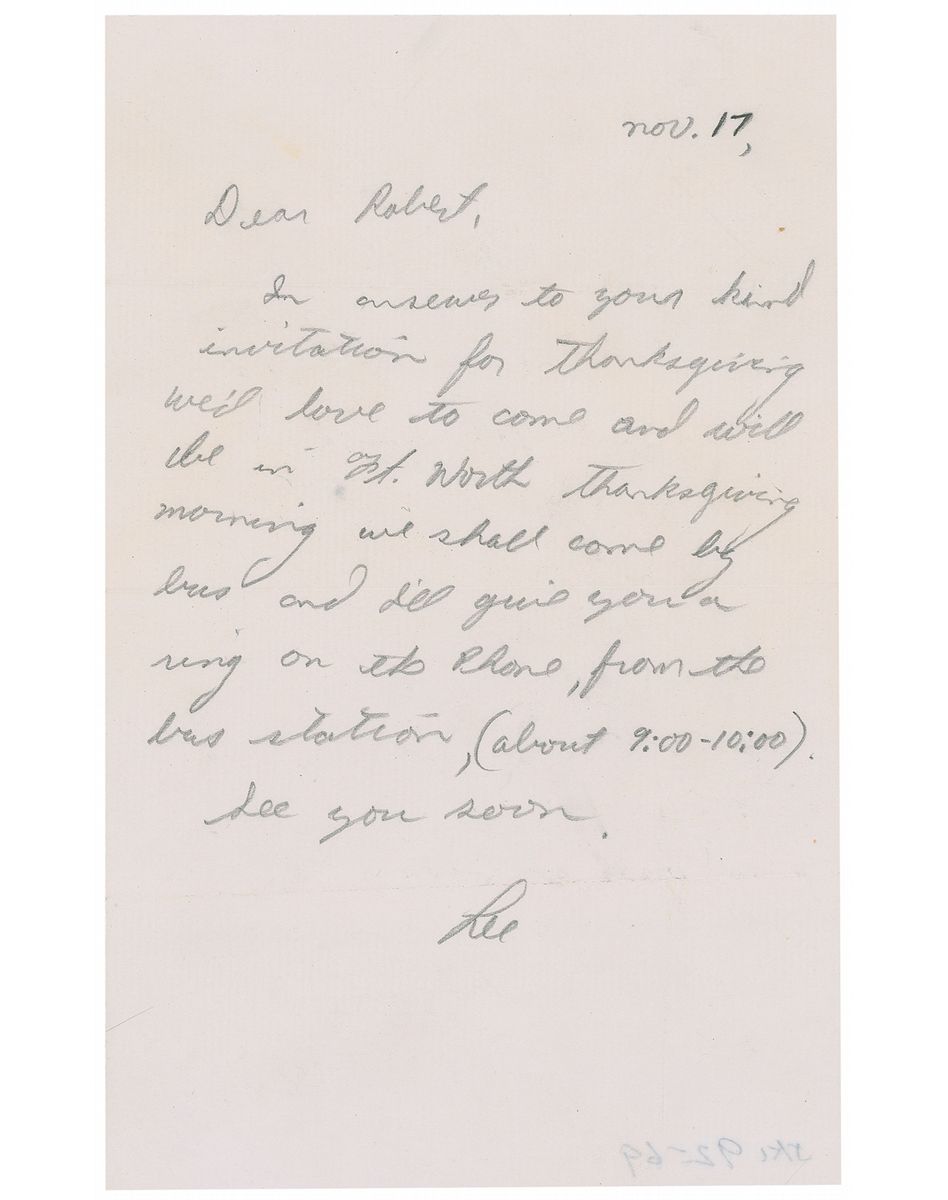 nov. 17,
Dear Robert,
In answer to your kind
invitation for thanksgiving
we'd love to come and will
be in Ft. Worth thanksgiving
morning we shall come by
bus and I'll give you a
ring on the Phone, from the
bus station, (about 9:00-10:00).
See you soon.
Lee